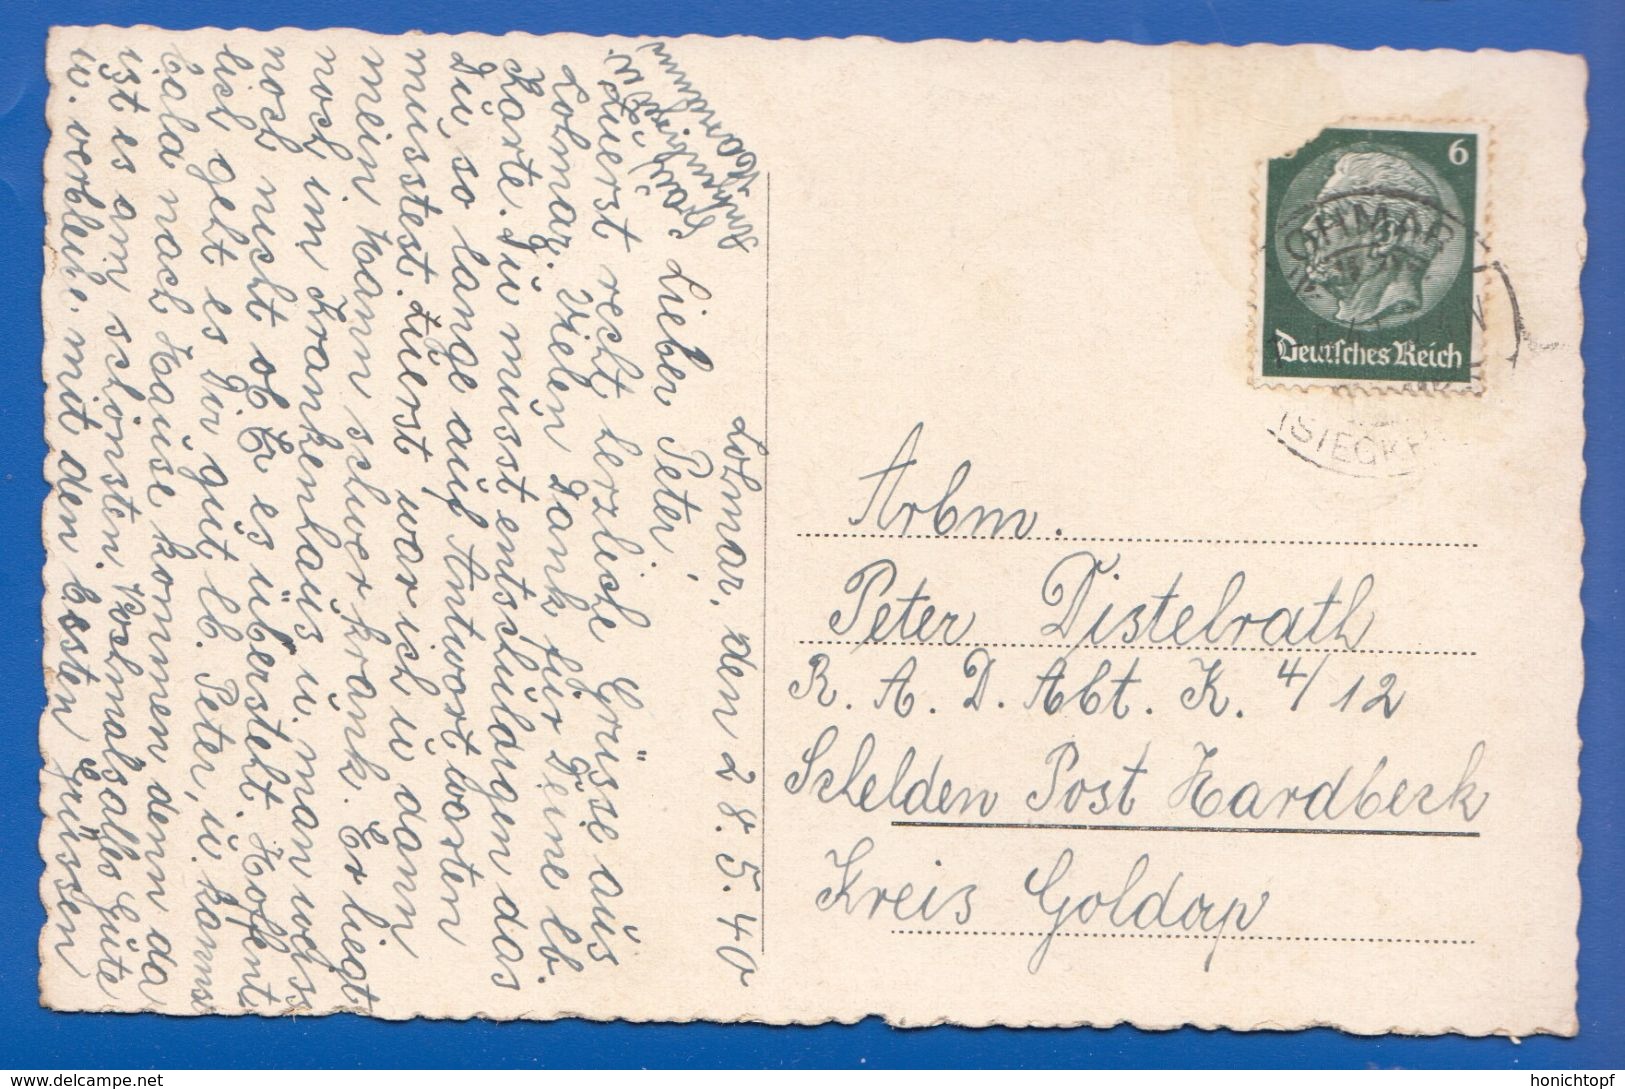 Lohmar, den 28.5.40
Lieber Peter!
Zuerst recht herzliche Grüsse aus
Lohmar. Vielen Dank für Deine lb.
Karte. Du musst entschuldigen das
Du so lange auf Antwort warten
musstest. Zuerst war ich u. dann
mein Mann schwer krank. Er liegt
noch im Krankenhaus u. man weiss
noch nicht ob Er es übersteht. Hoffent
lich geht es Dir gut lb. Peter, u. kanns
bald nach Hause kommen denn da
ist es am schönsten. Nochmals alles Gute
u. verbleibe mit den besten Grüssen
Frau
6
Deutsches Reich
LOHMAR
(SIEGKR
Arbm.
Peter Distelrath
R. A. D. Abt. K. 4/12
Schelden Post Hardbeck
Kreis Goldap
honichtopf